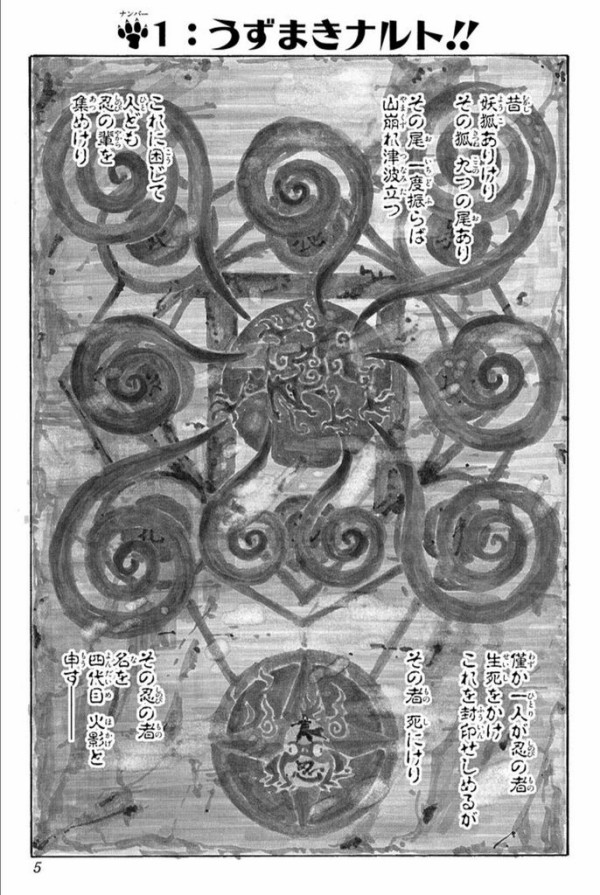 ナンバー
1：うずまきナルト!!
昔
妖狐ありけり
その狐 九つの尾あり
その尾 一度振らば
山崩れ津波立つ
これに困じて
人ども
忍の輩を
集めけり
僅か一人が忍の者
生死をかけ
これを封印せしめるが
その者 死にけり
その忍の者
名を
四代目 火影と
申す――
忍
5